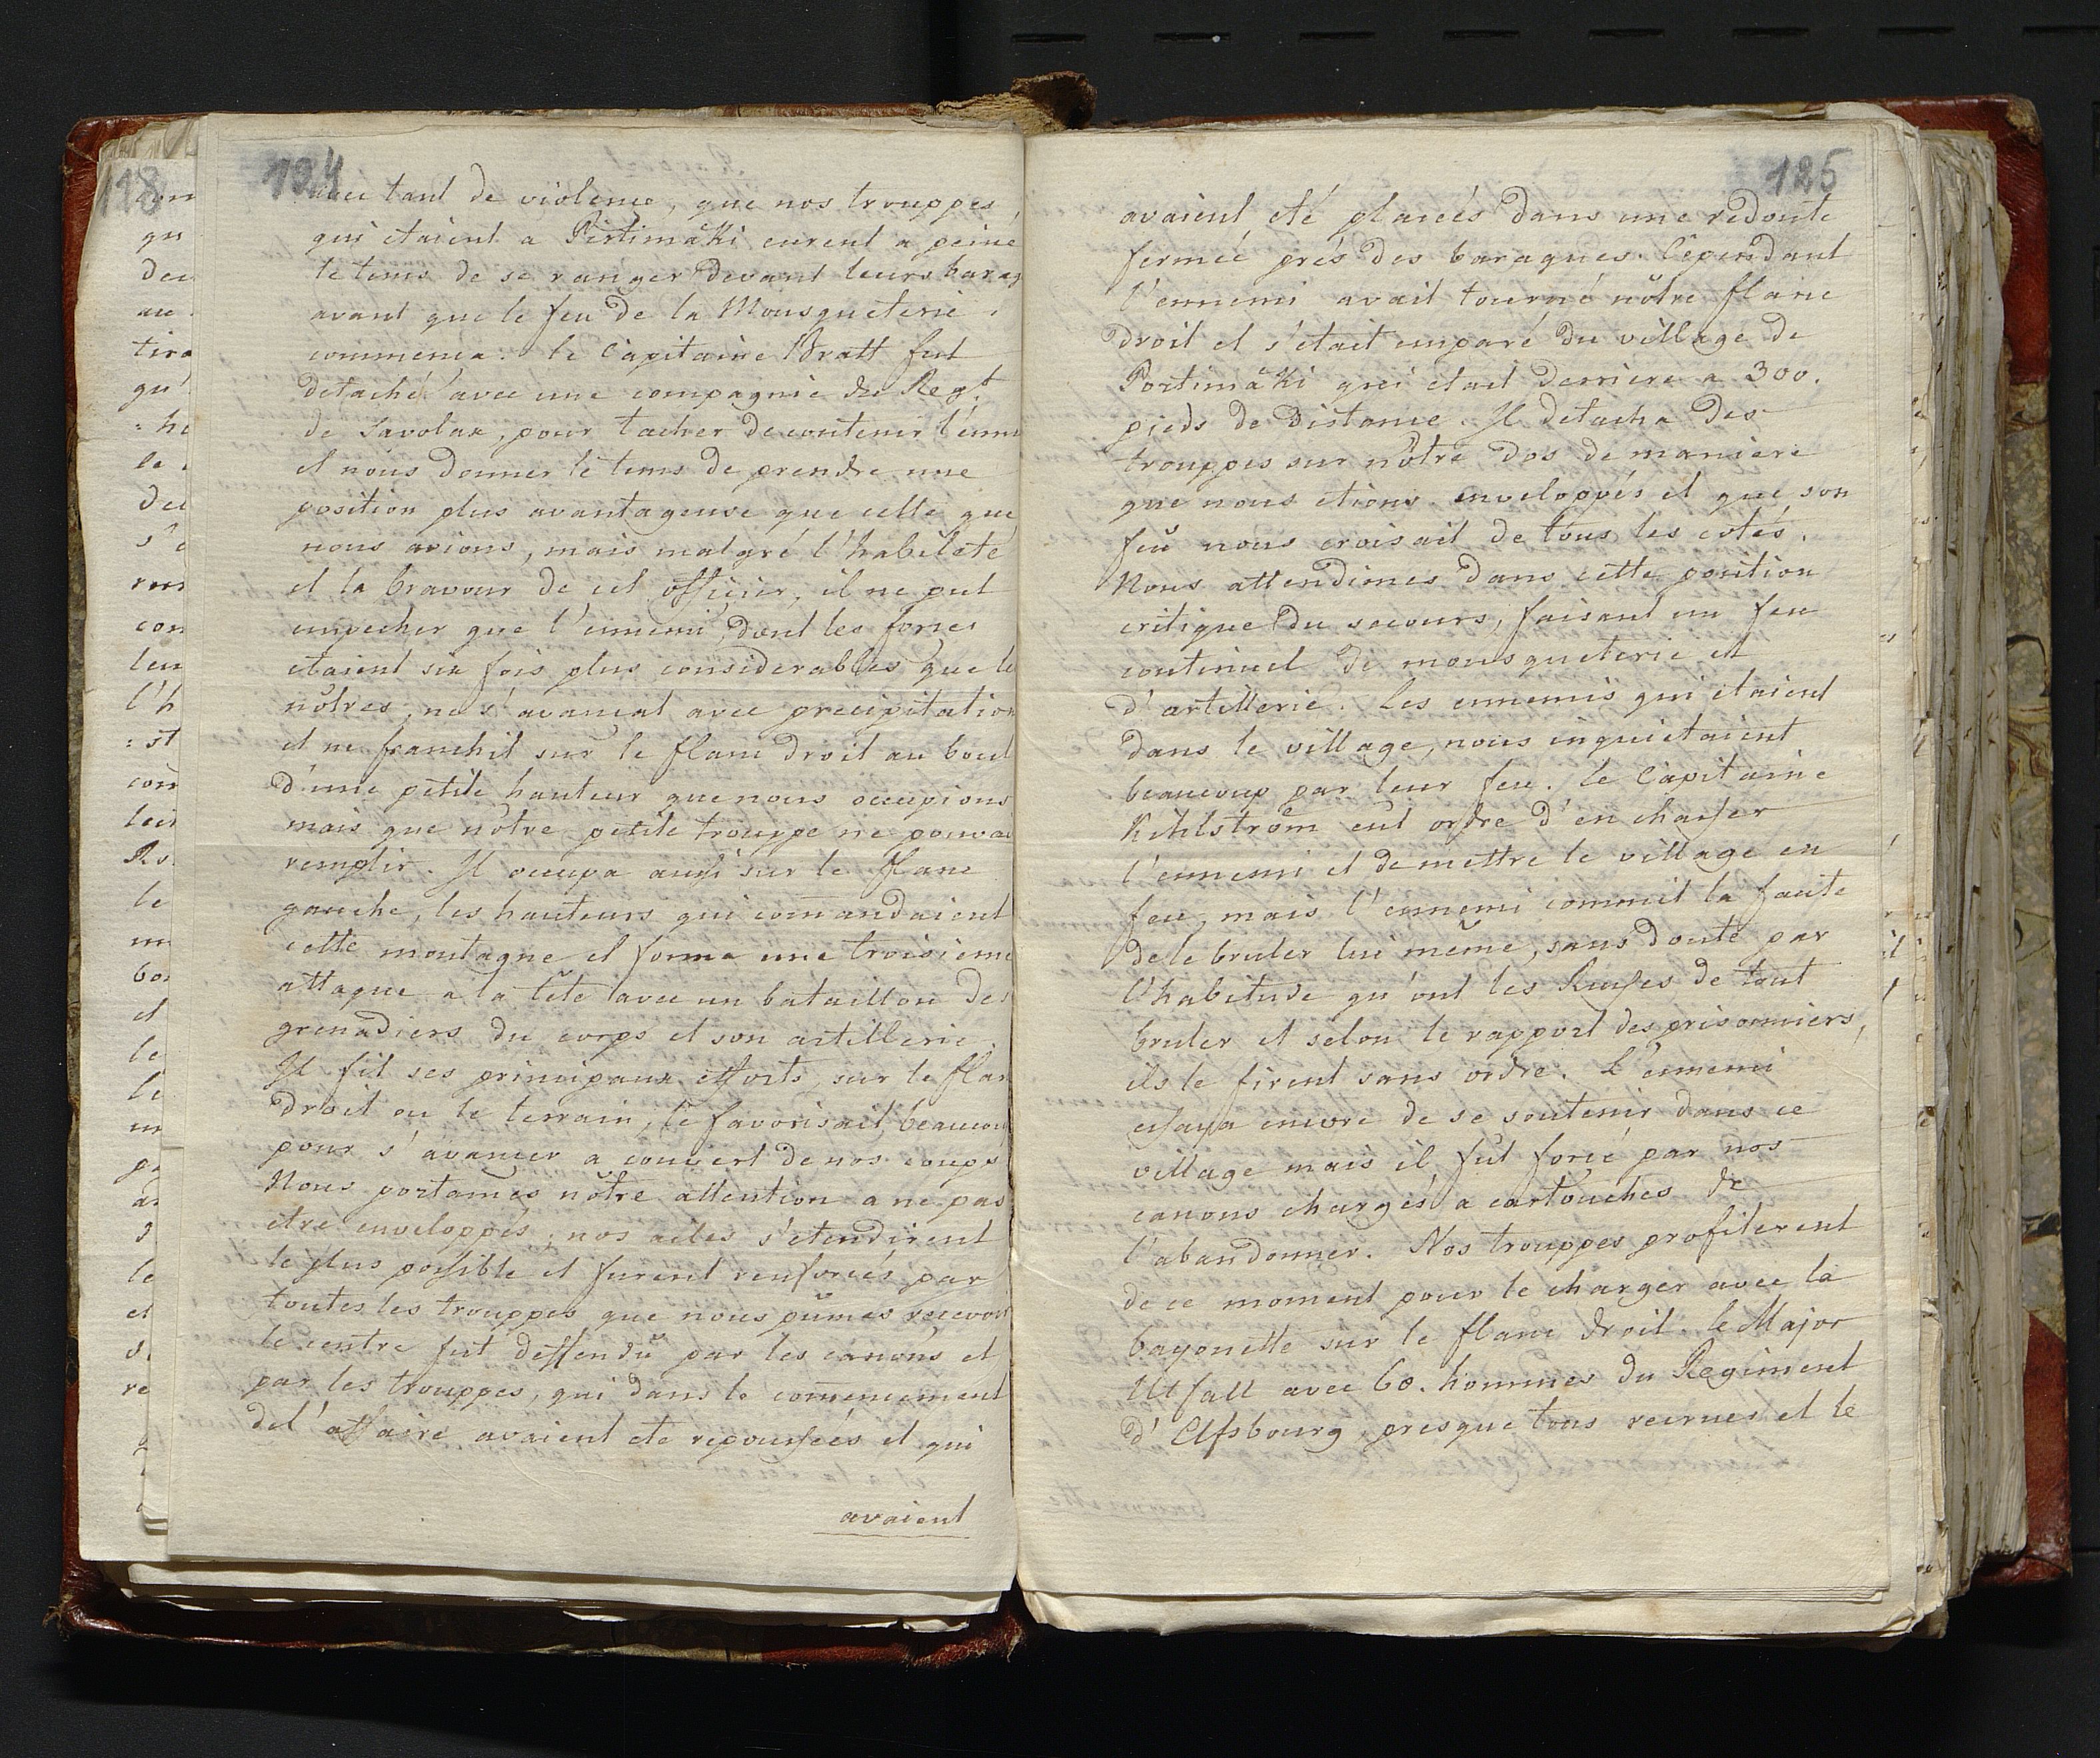 118
qu
deu
au
tira
qu'
le
deu
con
leu
l'h
: st
con
leur
le
bo
et
le
le
le
et
re
124
avec tant de violence, que nos trouppes,
qui etaient a Pirtimäki eurent a peine
le tems de se ranger devant leurs baraq
avant que le feu de la Mousqueterie
commenca. le Capitaine Bratt fut
detaché avec une compagnie du Regt.
de Savolax, pour tacher de contenir l'enne
et nous donner le tems de prendre une
position plus avantageuse que celle que
nous avions, mais malgré l'habileté
et la bravour de cet officier, il ne put
empecher que l'ennemi, dont les forces
etaient six fois plus considerables que le
nôtres, ne s'avancat avec precipitation
et ne franchit sur le flanc droit au bout
d'une petite hauteur que nous occupions
mais que nôtre petite trouppe ne pouvai
remplir. Il occupa aussi sur le flanc
gauche, les hauteurs qui comandaient
cette montagne et forma une troisieme
attaque a la tête avec un bataillon des
grenadiers du corps et son artillerie.
Il fit ses principaux efforts, sur le flan
droit ou le terrain, le favorisait beaucou
pour s'avancer a couvert de nos coups
Nous portames nôtre attention a ne pas
etre enveloppés, nos ailes s'etendirent
le plus possible et furent renforcés par
toutes les trouppes que nous pûmes recevoir
le centre fut deffendû par les canons et
par les trouppes, qui dans le comencement
del'affaire avaient ete repoussées et qui
avaient
125
avaient, eté placeés dans une redoute
fermeé prés des baraques. Cependant
l'ennemi avait tourné nôtre flanc
droit et s'était emparé du village de
Portimäki qui etait derriere a 300.
pieds de distance. Il detacha des
trouppes sur nôtre dos de maniere
que nous etions enveloppés et que son
feu nous croisait de tous les cotés.
Nous attendimes dans cette position
critique du secours, faisant un feu
continuel de mousqueterie et
d'artillerie. Les ennemis qui etaient
dans le village, nous inquietaient
beaucoup par leur feu. le Capitaine
Kihlström eut ordre d'en chasser
l'ennemi et de mettre le village en
feu, mais l'ennemi commit la faute
dele bruler lui même, sans doute par
l'habitude qu'ont les Russes de tout
bruler et selon le rapport des prisonniers,
ils le firent sans ordre. L'ennemi
essaya encore de se soutenir dans ce
village mais il fut forcé par nos
canons chargés a cartouches de
l'abandonner. Nos trouppes profiterent
de ce moment pour le charger avec la
bayonette sur le flanc droit. le Major
Utfall avec 60. hommes du Regiment
d'Elfsbourg, presque tous recrues et le